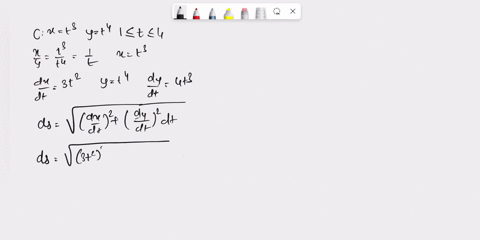 C: x=t³ y=t⁴ 1≤t≤4
x/y = t³/t⁴ = 1/t x=t³
dx/dt = 3t² y=t⁴ dy/dt = 4t³
ds = √((dx/dt)² + (dy/dt)² dt
ds = √(3t²)²